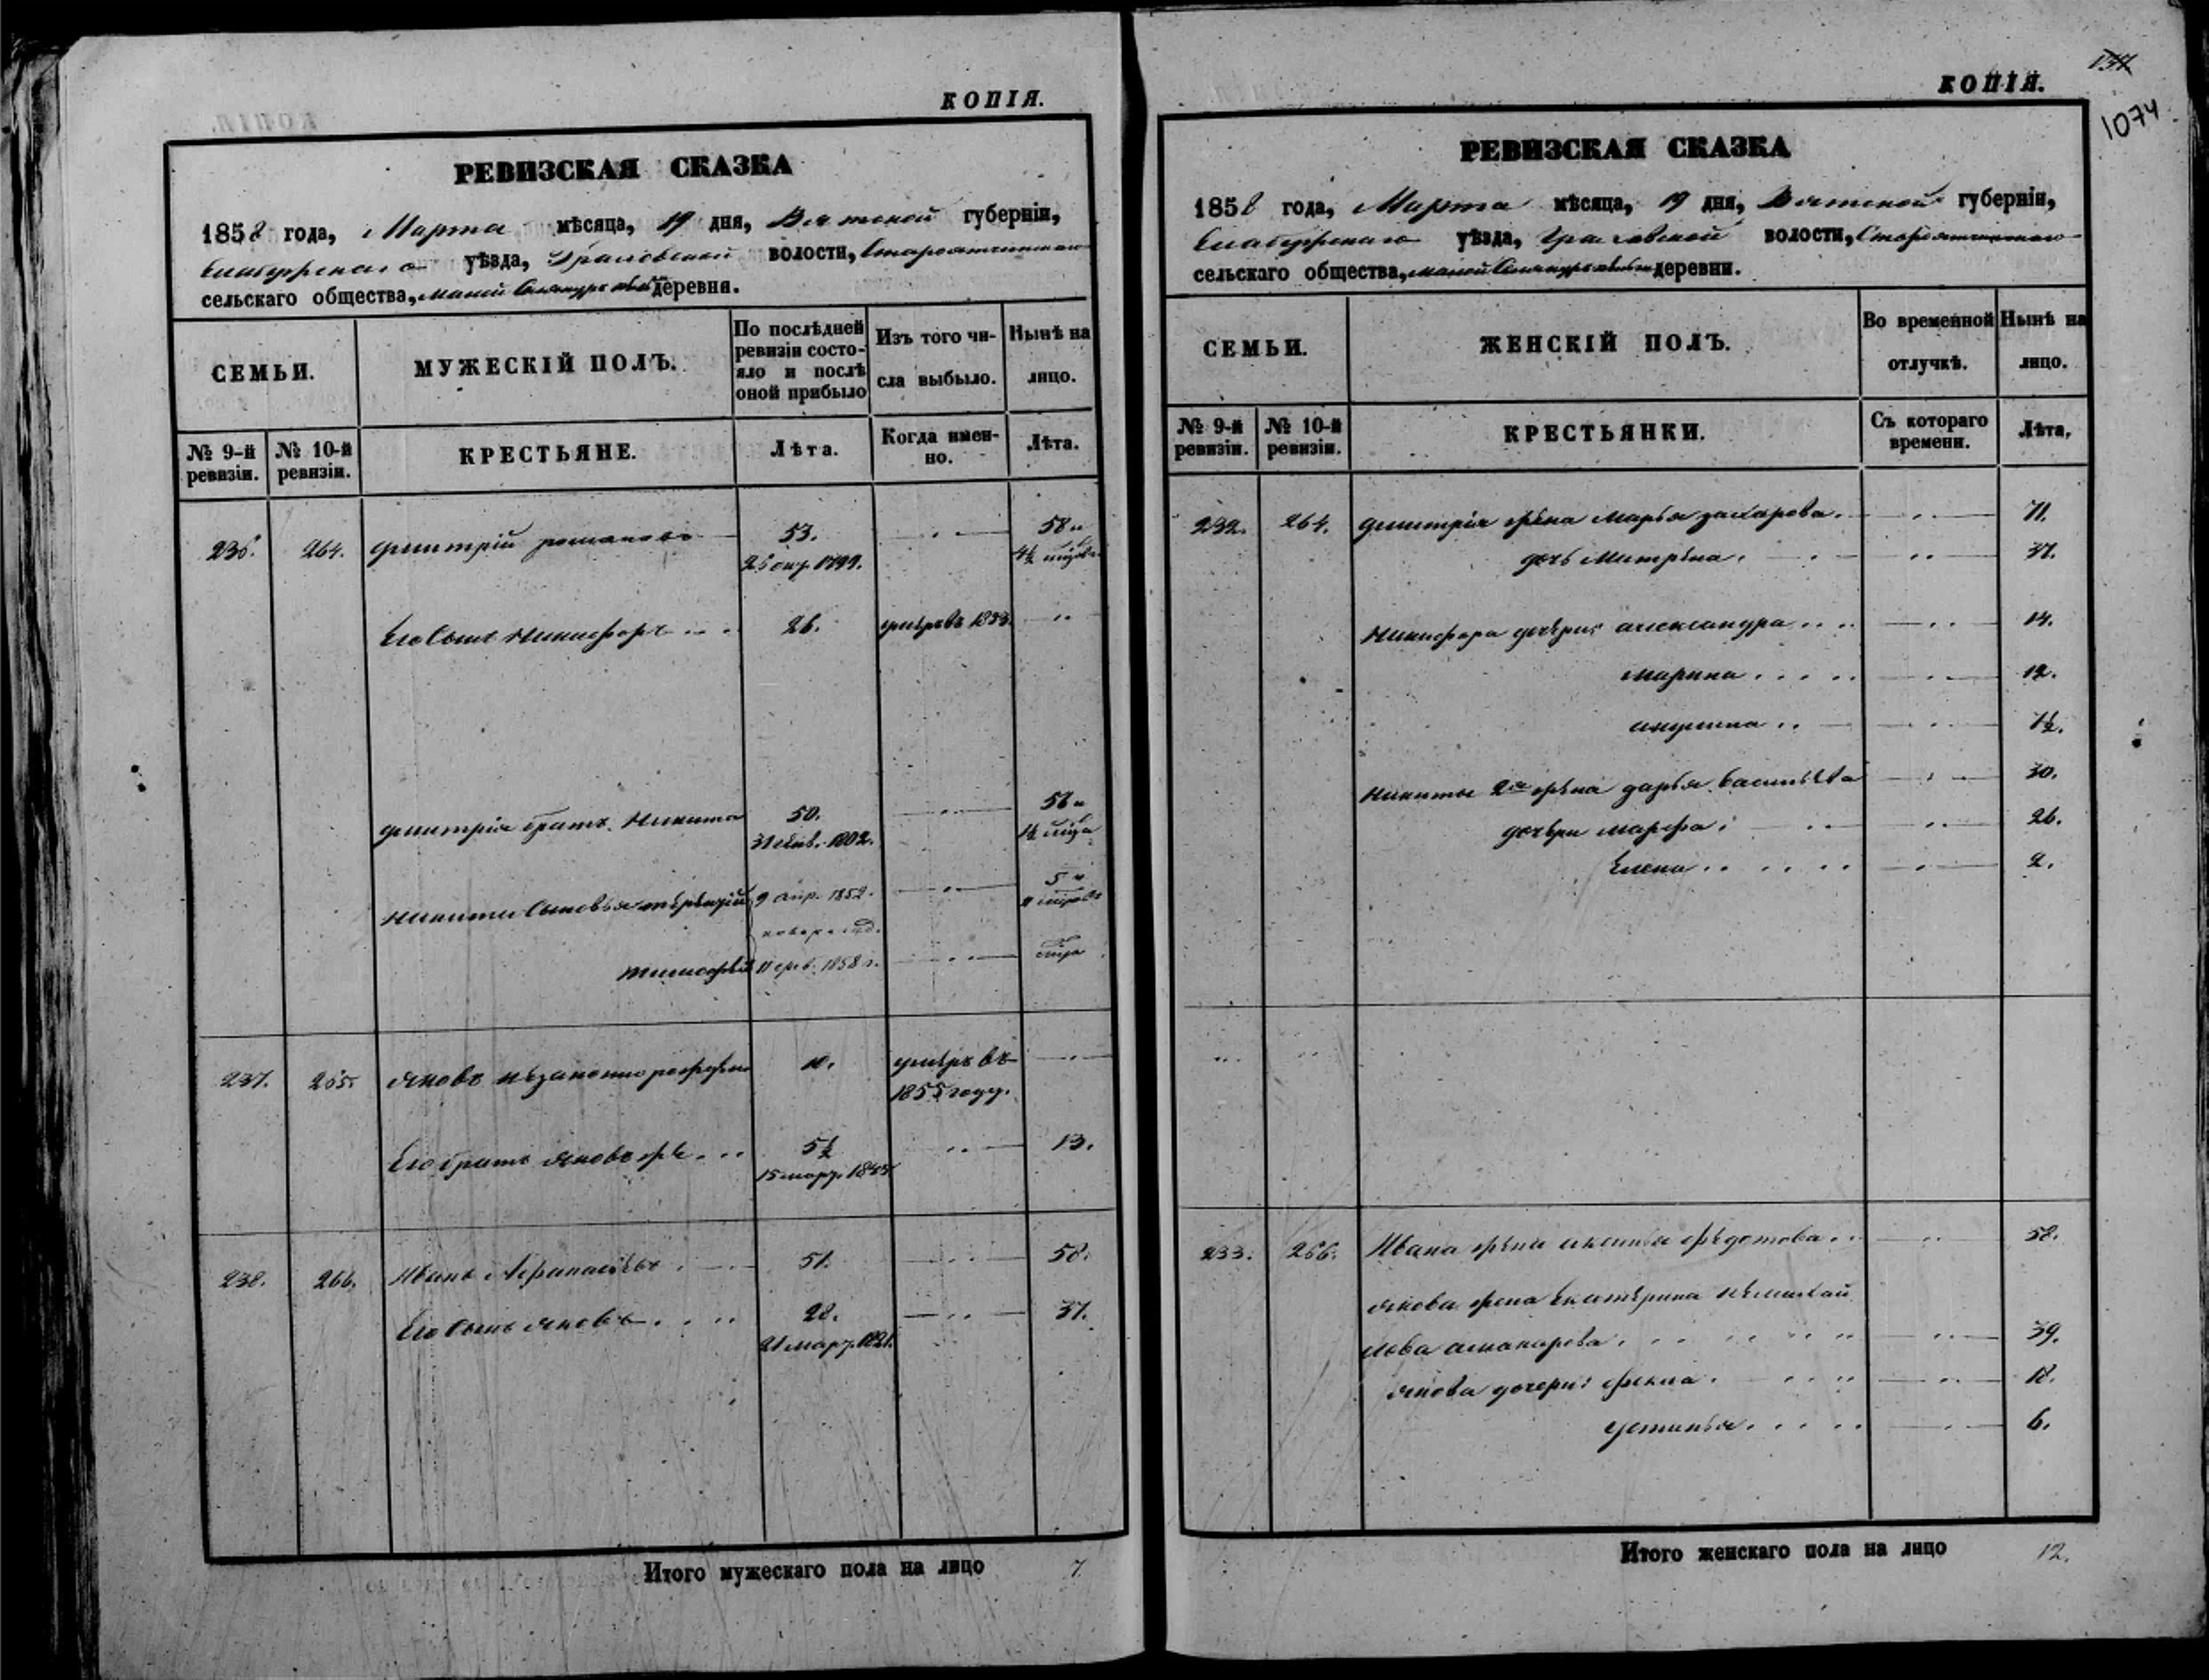 КОПІЯ.
РЕВИЗСКАЯ СКАЗКА
1858 года, Марта мѣсяца, 19 дня, Вятской губерніи,
Елабужскаго уѣзда, Граховской волости,
сельскаго общества, малой деревня.
СЕМЬИ.
МУЖЕСКІЙ ПОЛЪ.
По послѣдней ревизіи состо-
яло и послѣ оной прибыло
Изъ того чи-
сла выбыло.
Нынѣ на
лицо.
№ 9-й ревизіи.
№ 10-й ревизіи.
КРЕСТЬЯНЕ.
Лѣта.
Когда имен-
но.
Лѣта.
236. 264. Дмитрій романовъ 53. 58 и
Его Сынъ Никифоръ 26. умеръ въ 1853.
Дмитрія братъ Никита 50. 56 и
31 1802.
Никиты Сыновья терентій 9 апр. 1852. 5 и
тимофей 11 фев. 1858 г.
237. 265. Яковъ незаконно рожден 10. умеръ въ
1855 году.
Его братъ Яковъ же 5½ 13.
238. 266. Иванъ Афанасьевъ 51. 58.
Его Сынъ Яковъ 28. 37.
21 мар. 1821.
Итого мужескаго пола на лицо 7
КОПІЯ.
1074
РЕВИЗСКАЯ СКАЗКА
1858 года, Марта мѣсяца, 19 дня, Вятской губерніи,
Елабужскаго уѣзда, Граховской волости,
сельскаго общества, малой деревни.
СЕМЬИ.
ЖЕНСКІЙ ПОЛЪ.
Во временной
отлучкѣ.
Нынѣ на
лицо.
№ 9-й ревизіи.
№ 10-й ревизіи.
КРЕСТЬЯНКИ.
Съ котораго
времени.
Лѣта.
232. 264. Дмитрія жена Марья захарова. 71.
дочь Матрена. 37.
Никифора дочери: александра 14.
марина 12.
акулина
Никиты 2я жена дарья Васильева 30.
дочери марфа: 26.
Елена 2.
233. 266. Ивана жена аксинья федотова 58.
Якова жена Екатерина
39.
Якова дочери: фекла. 18.
устинья 6.
Итого женскаго пола на лицо 12.